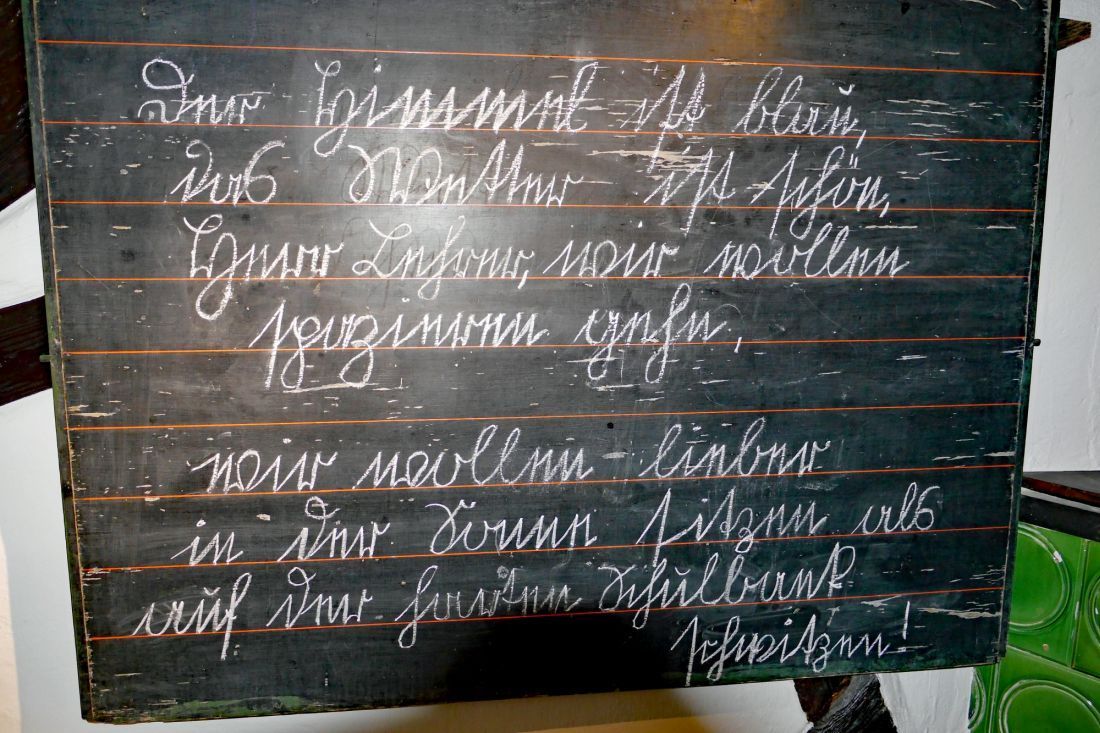 Der Himmel ist blau,
das Wetter ist schön,
Herr Lehrer, wir wollen
spazieren gehn,
wir wollen lieber
in der Sonne sitzen als
auf der harten Schulbank
schwitzen!